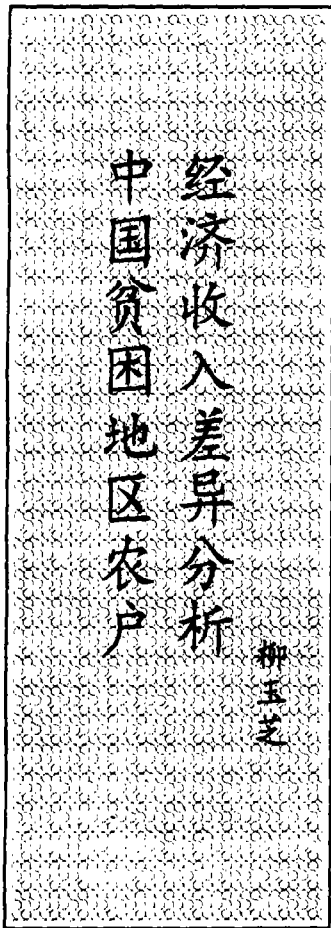 中国贫困地区农户
经济收入差异分析
柳玉芝